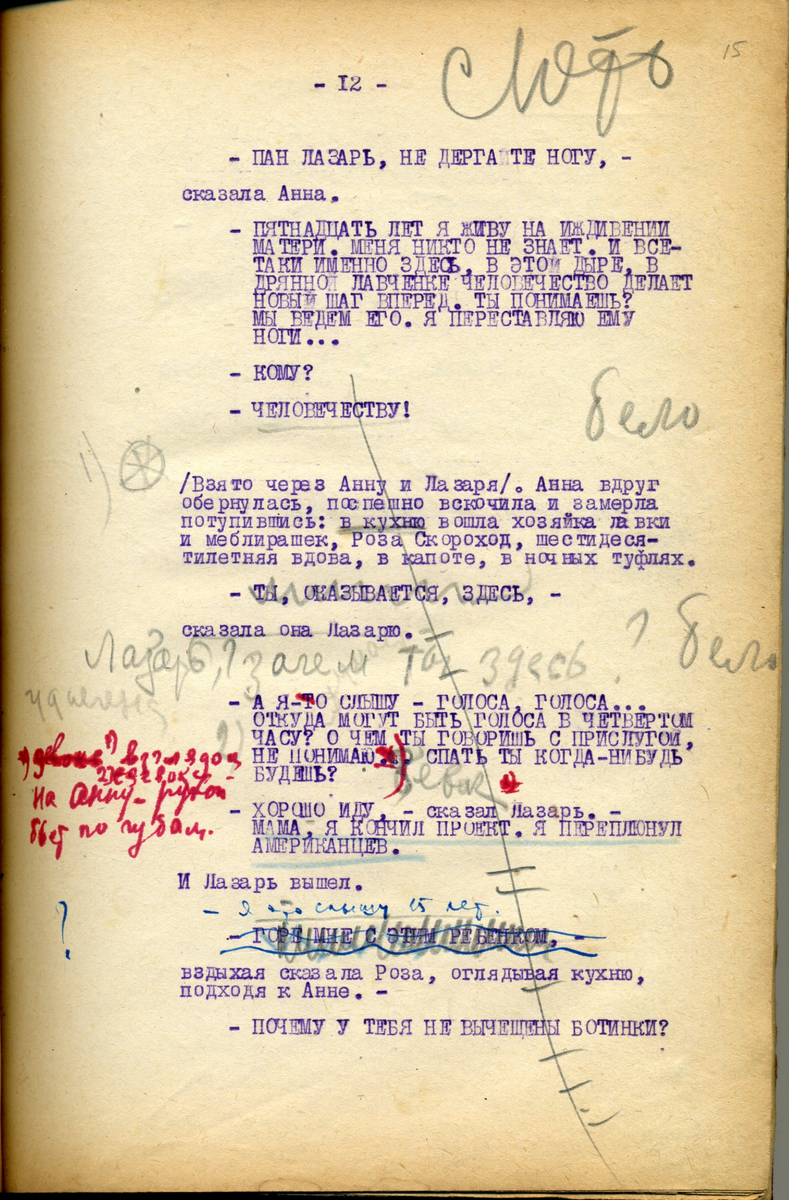 15
- 12 -
- ПАН ЛАЗАРЬ, НЕ ДЕРГАЙТЕ НОГУ, -
сказала Анна.
- ПЯТНАДЦАТЬ ЛЕТ Я ЖИВУ НА ИЖДИВЕНИИ
МАТЕРИ. МЕНЯ НИКТО НЕ ЗНАЕТ. И ВСЕ-
ТАКИ ИМЕННО ЗДЕСЬ, В ЭТОЙ ДЫРЕ, В
ДРЯННОЙ ЛАВЧЕНКЕ ЧЕЛОВЕЧЕСТВО ДЕЛАЕТ
НОВЫЙ ШАГ ВПЕРЕД. ТЫ ПОНИМАЕШЬ?
МЫ ВЕДЕМ ЕГО. Я ПЕРЕСТАВЛЯЮ ЕМУ
НОГИ...
- КОМУ?
- ЧЕЛОВЕЧЕСТВУ!
бело
1)
/Взято через Анну и Лазаря/. Анна вдруг
обернулась, поспешно вскочила и замерла
потупившись: в кухню вошла хозяйка лавки
и меблирашек, Роза Скороход, шестидеся-
тилетняя вдова, в капоте, в ночных туфлях.
- ТЫ, ОКАЗЫВАЕТСЯ, ЗДЕСЬ, -
сказала она Лазарю. -
Лазарь, зачем ты здесь? бело
2)
- А Я-ТО СЛЫШУ - ГОЛОСА, ГОЛОСА...
ОТКУДА МОГУТ БЫТЬ ГОЛОСА В ЧЕТВЕРТОМ
ЧАСУ? О ЧЕМ ТЫ ГОВОРИШЬ С ПРИСЛУГОЙ,
НЕ ПОНИМАЮ... СПАТЬ ТЫ КОГДА-НИБУДЬ
БУДЕШЬ?
на Анну - рукой
бьет по губам.
- ХОРОШО ИДУ, - сказал Лазарь. -
МАМА, Я КОНЧИЛ ПРОЕКТ. Я ПЕРЕПЛЮНУЛ
АМЕРИКАНЦЕВ.
И Лазарь вышел.
- Я это слышу 15 лет.
?
- ГОРЕ МНЕ С ЭТИМ РЕБЕНКОМ, -
вздыхая сказала Роза, оглядывая кухню,
подходя к Анне. -
- ПОЧЕМУ У ТЕБЯ НЕ ВЫЧЕЩЕНЫ БОТИНКИ?